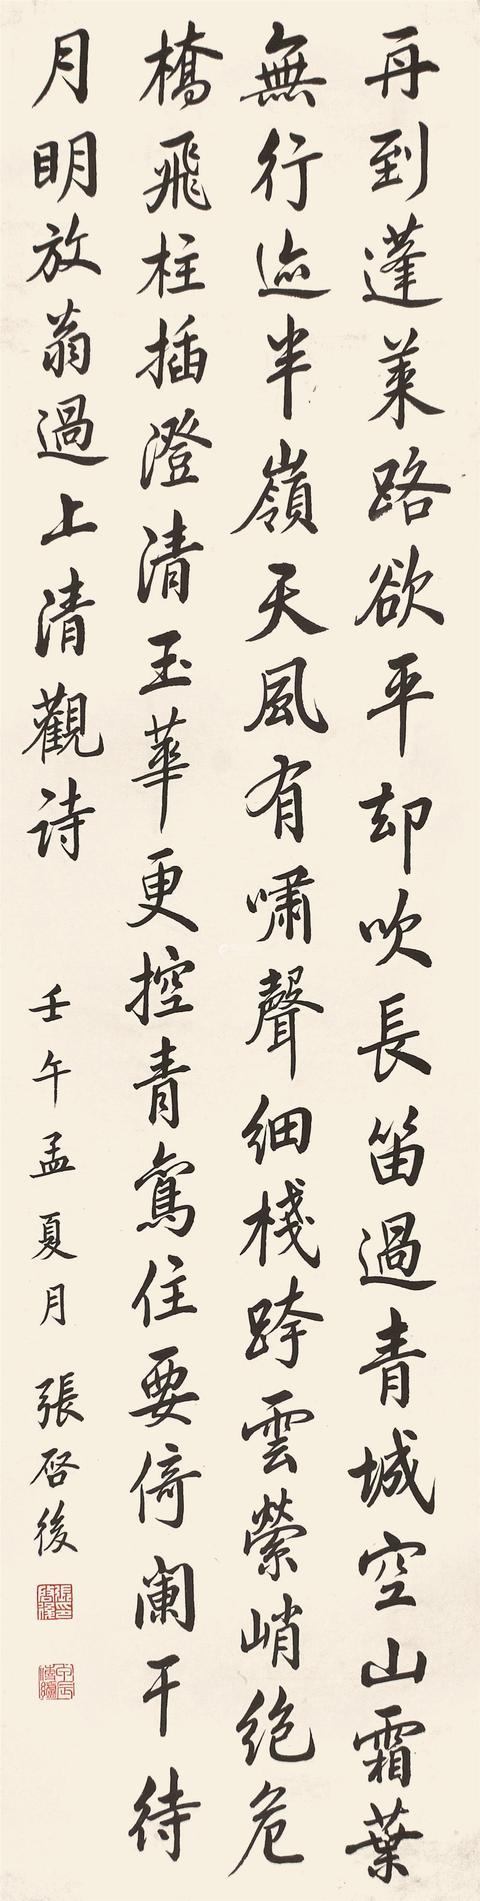 再到蓬萊路欲平却吹長笛過青城空山霜葉
無行迹半嶺天風有嘯聲細棧跨雲縈峭絕危
橋飛柱插澄清玉華更控青鸞住要倚闌干待
月明放翁過上清觀詩
壬午孟夏月張啓後